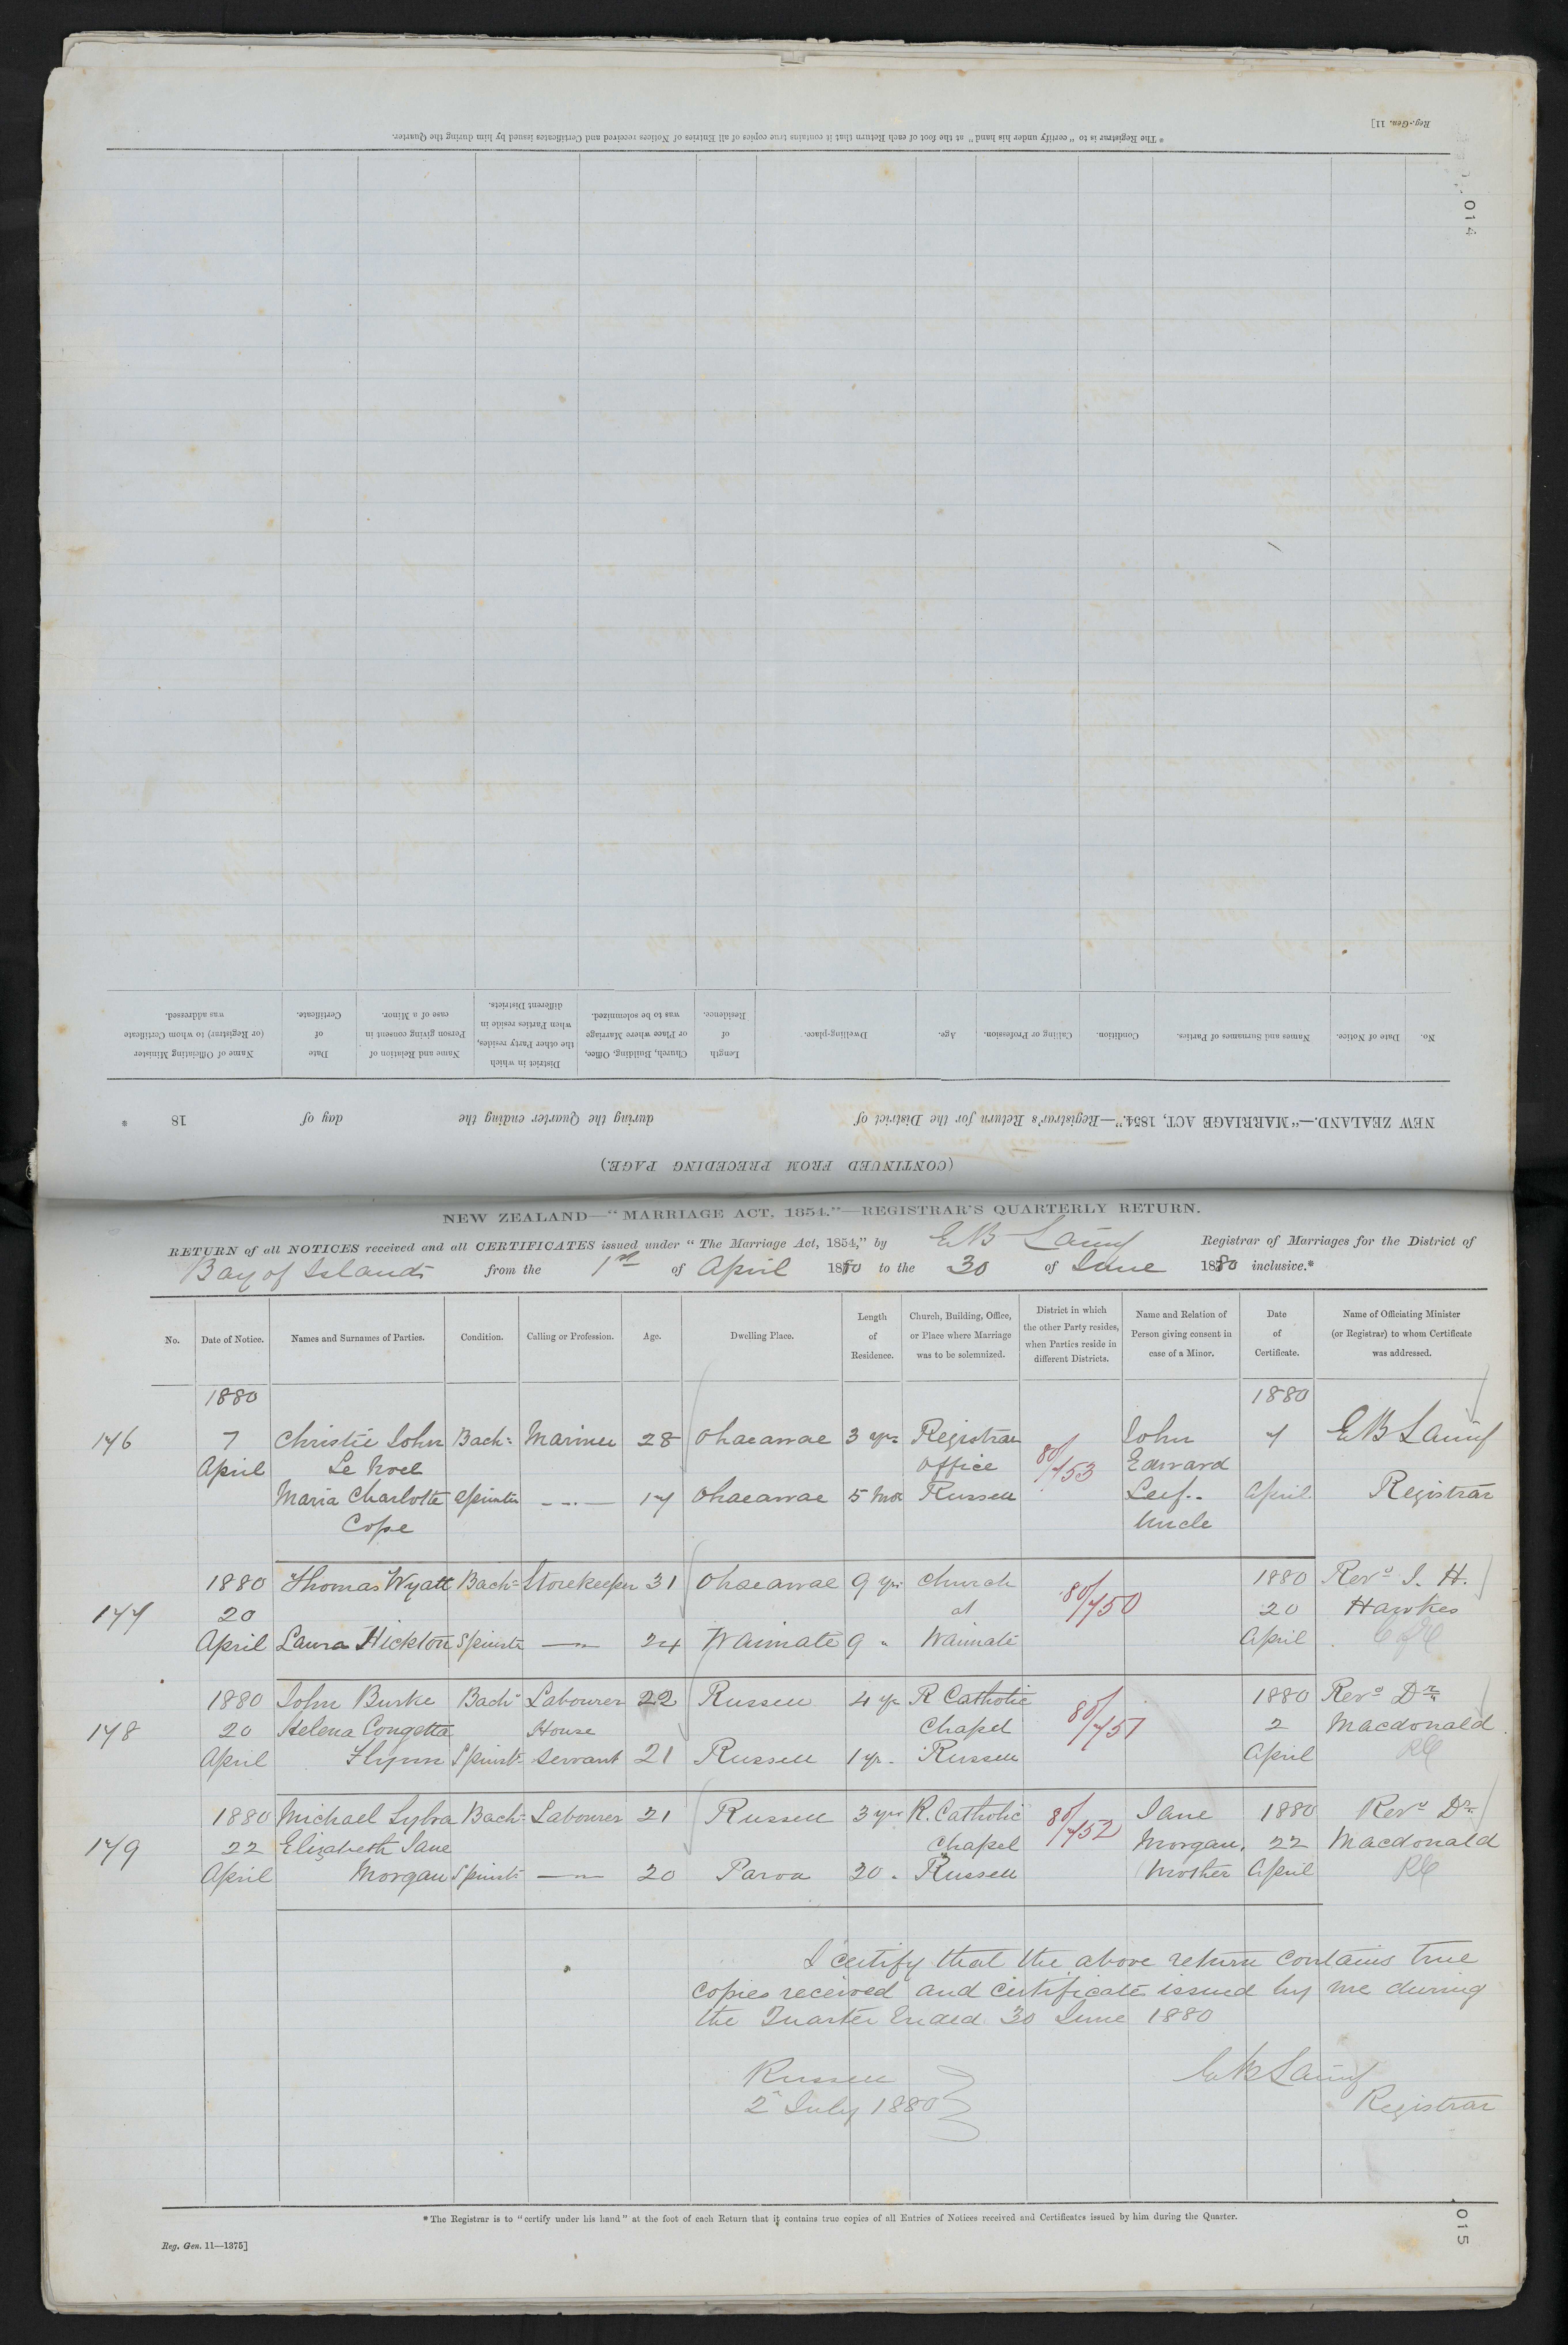 Reg.-Gen. 11]
014
*The Registrar is to "certify under his hand" at the foot of each Return that it contains true copies of all Entries of Notices received and Certificates issued by him during the Quarter.
(CONTINUED FROM PRECEDING PAGE.)
NEW ZEALAND.—"MARRIAGE ACT, 1854."—Registrar's Return for the District of during the Quarter ending the day of 18 *
No. Date of Notice. Names and Surnames of Parties. Condition. Calling or Profession. Age. Dwelling-place. Length of Residence. Church, Building, Office, or Place where Marriage was to be solemnized. District in which the other Party resides, when Parties reside in different Districts. Name and Relation of Person giving consent in case of a Minor. Date of Certificate. Name of Officiating Minister (or Registrar) to whom Certificate was addressed.
NEW ZEALAND—"MARRIAGE ACT, 1854."—REGISTRAR'S QUARTERLY RETURN.
RETURN of all NOTICES received and all CERTIFICATES issued under "The Marriage Act, 1854," by E B Laing Registrar of Marriages for the District of
Bay of Islands from the 1st of April 1880 to the 30 of June 1880 inclusive.*
No. Date of Notice. Names and Surnames of Parties. Condition. Calling or Profession. Age. Dwelling Place. Length of Residence. Church, Building, Office, or Place where Marriage was to be solemnized. District in which the other Party resides, when Parties reside in different Districts. Name and Relation of Person giving consent in case of a Minor. Date of Certificate. Name of Officiating Minister (or Registrar) to whom Certificate was addressed.
1880 1880
176 7 Christie John Bach: Mariner 28 Ohaeawae 3 yrs Registrar John 7 E B Laing
April Le Noel Office 80/753 Edward
Maria Charlotte Spinster — 17 Ohaeawae 5 Mos Russell Leef.. April Registrar
Cope Uncle
1880 Thomas Wyatt Bach: Storekeeper 31 Ohaeawae 9 yrs Church 80/750 1880 Revd J. H.
177 20 at 20 Hawkes
April Laura Hickton Spinster — 24 Waimate 9 " Waimate April C of E
1880 John Burke Bach: Labourer 22 Russell 4 yrs R Catholic 80/751 1880 Revd Dr
178 20 Helena Congetta House Chapel 2 Macdonald
April Flynn Spinst: servant 21 Russell 1 yr. Russell April RC
1880 Michael Sylva Bach: Labourer 21 Russell 3 yrs R. Catholic 80/752 Jane 1880 Revd Dr
179 22 Elizabeth Jane Chapel Morgan, 22 Macdonald
April Morgan Spinst: — 20 Paroa 20 " Russell Mother April RC
I certify that the above return contains true
copies received and certificate issued by me during
the Quarter Ended 30 June 1880
Russell E B Laing
2d July 1880 Registrar
*The Registrar is to "certify under his hand" at the foot of each Return that it contains true copies of all Entries of Notices received and Certificates issued by him during the Quarter.
Reg. Gen. 11—1375]
015